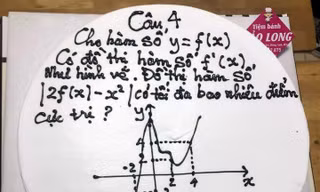 Câu 4
Tiệm bánh
O LONG
Cho hàm số y = f(x)
Có đồ thị hàm số f'(x)
Như hình vẽ. Đồ thị hàm số
|2f(x) - x²| có tối đa bao nhiêu điểm
cực trị?
y
4
2
-2
2
4
x